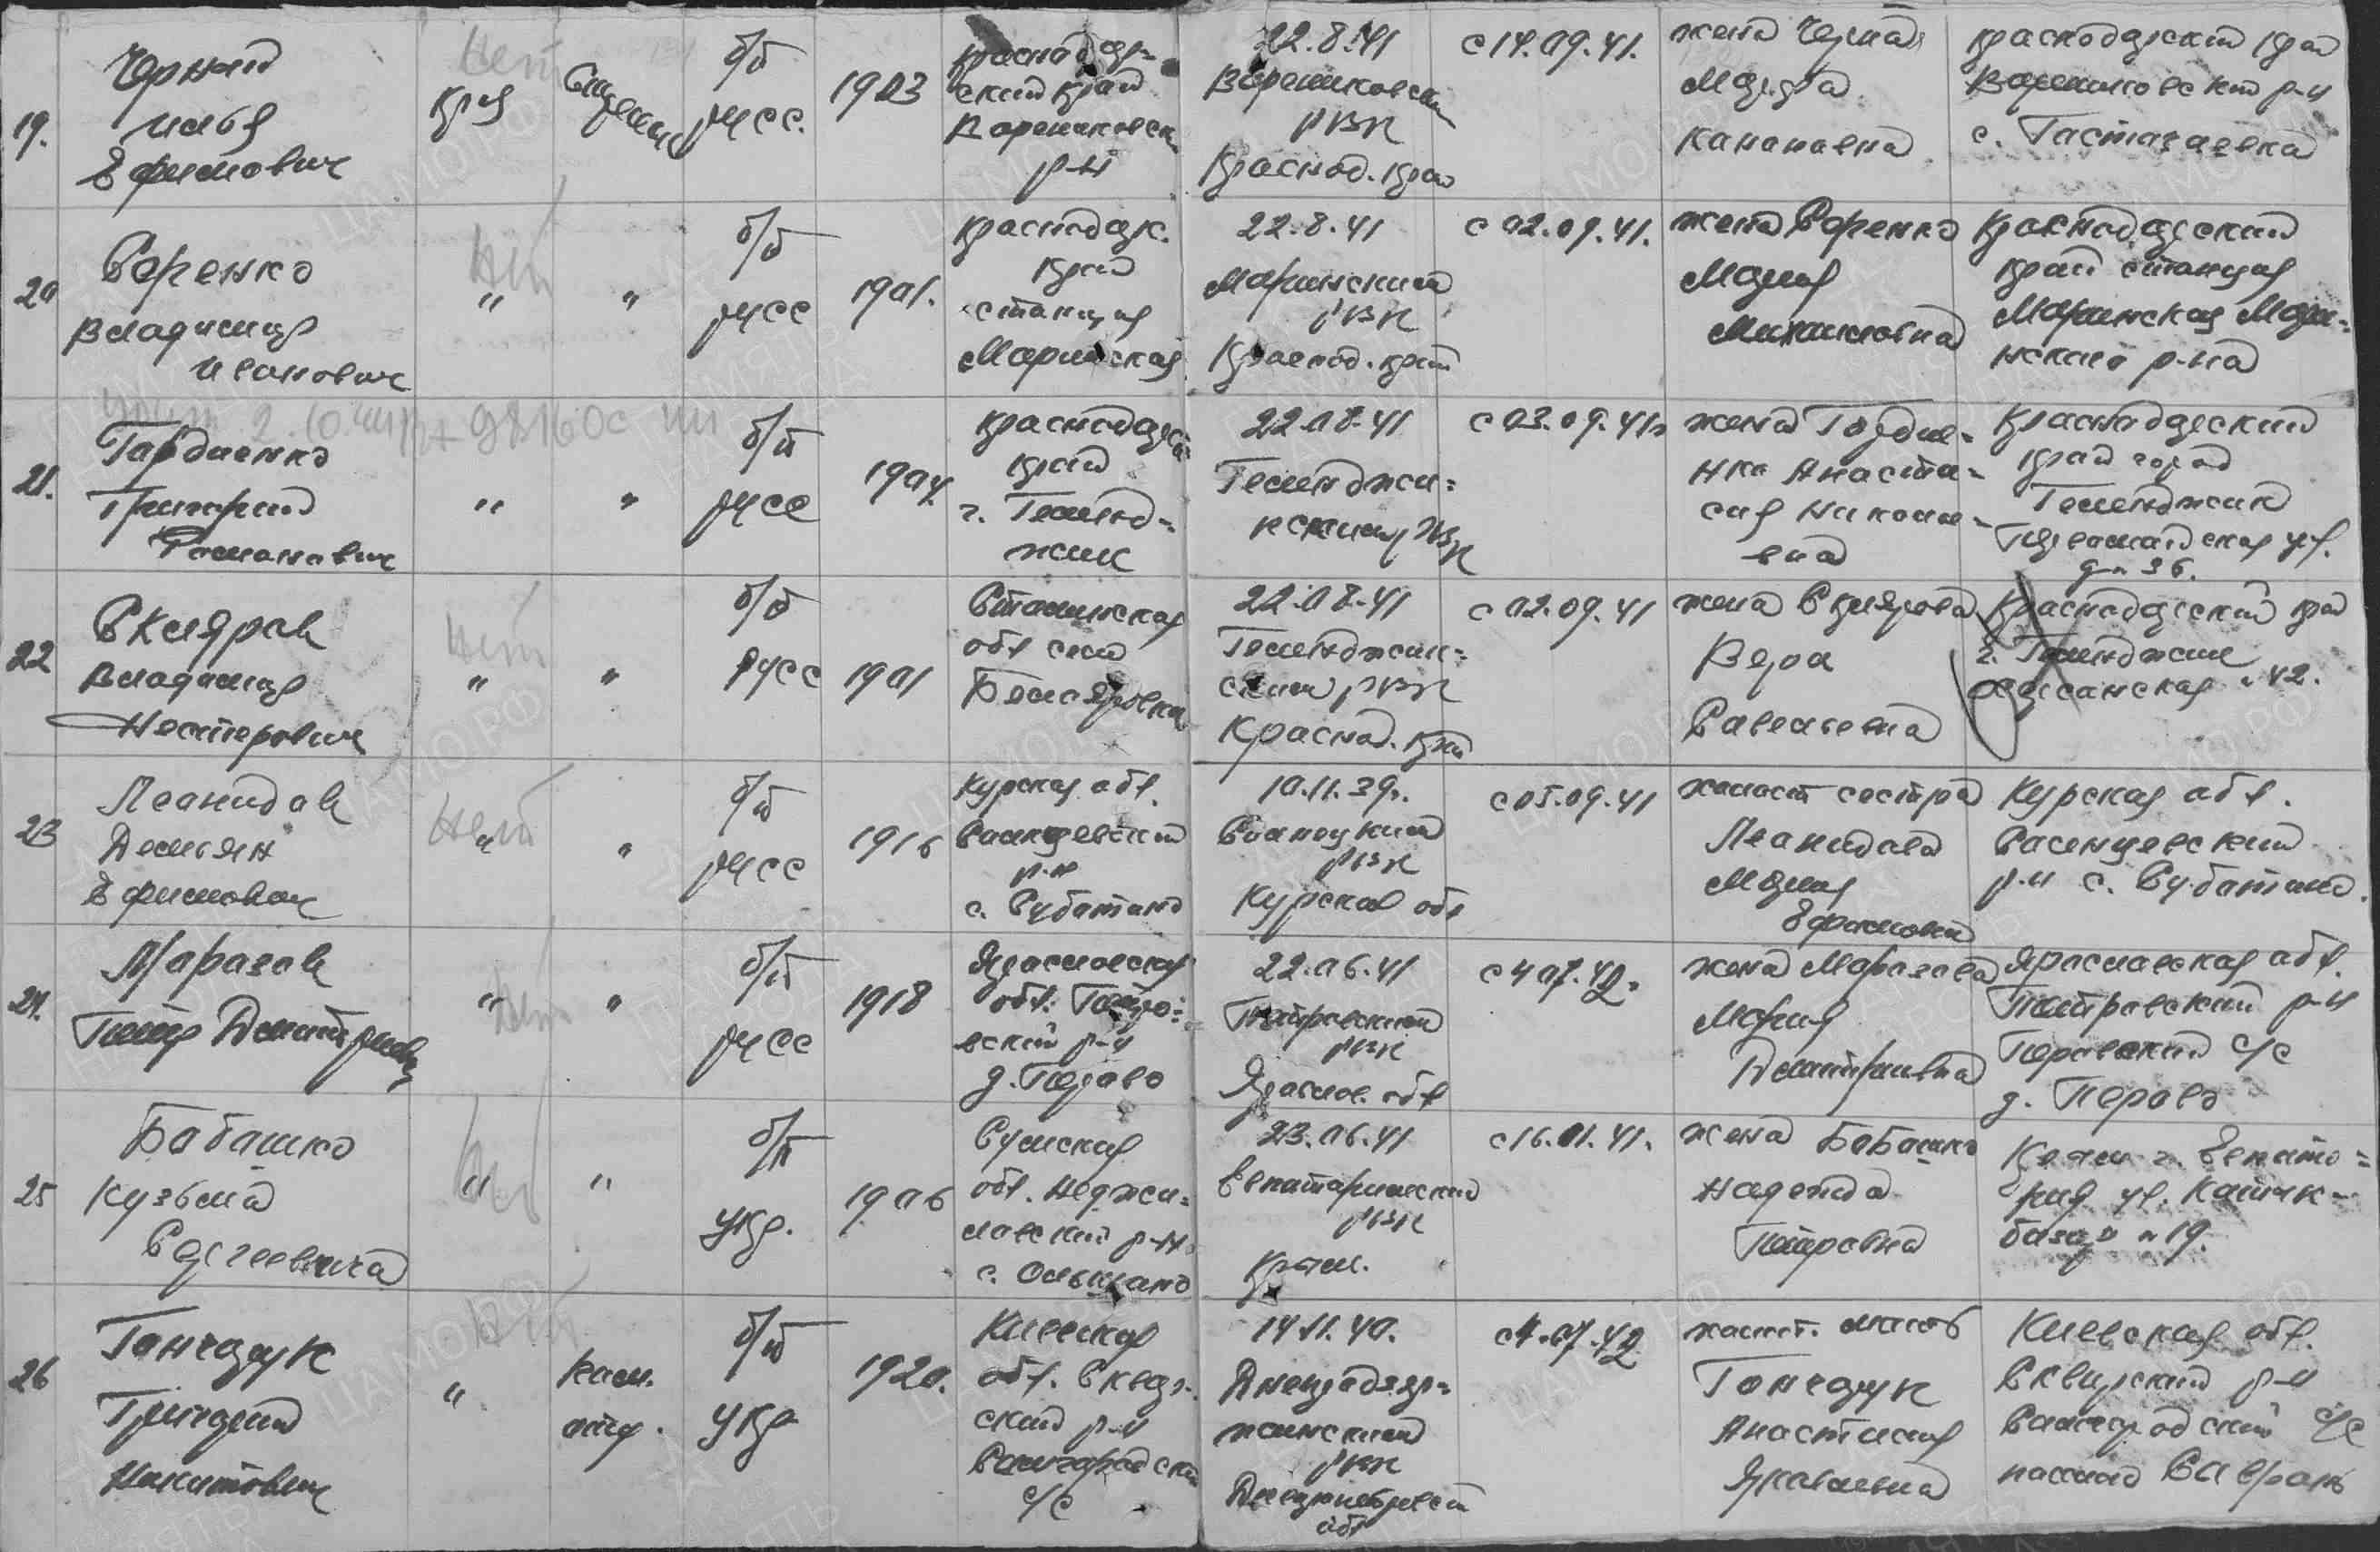 19.
Черный
Илья
Ефимович
нет
кр-ц
б/п
русс.
1903
Краснодар-
ский край
Варениковск
р-н
22.8.41
Варениковский
РВК
Краснод. край
с 14.09.41.
жена Черная
Марфа
Канановна
Краснодарский край
Варениковский р-н
с. Гастагаевка
20
Саренко
Владимир
Иванович
нет
"
"
б/п
русс
1901.
Краснодар.
край
станица
Маринская
22.8.41
Маринский
РВК
Краснод. край
с 02.09.41.
жена Саренко
Мария
Михайловна
Краснодарский
край станица
Маринская Мари-
нского р-на
21.
Гордиенко
Григорий
Романович
"
"
б/п
русс
1904
Краснодарск
край
г. Геленд-
жик
22.08.41
Геленджи-
кским РВК
с 03.09.41г
жена Гордие-
нко Анаста-
сия Никола-
евна
Краснодарский
край город
Геленджик
ул.
д. 36.
22
Скляров
Владимир
Нестерович
нет
"
"
б/п
русс
1901
Сталинская
обл село
22.08.41
Геленджик-
ским РВК
Краснод. край
с 02.09.41
жена Склярова
Вера
Савельевна
Краснодарский край
г. Геленджик
42.
23
Леонидов
Демьян
Ефимович
нет
"
"
б/п
русс
1916
Курская обл.
р-н
с. Субатино
10.11.39г.
РВК
Курская обл
с 05.09.41
холост сестра
Леонидова
Мария
Ефимовна
Курская обл.
р-н с. Субатино.
24.
Морозов
Петр Дмитриевич
"
нет
"
б/п
русс
1918
Ярославская
обл. Петро-
вский р-н
д. Перово
22.06.41
Петровский
РВК
Яросл. обл
с 4 07.42.
жена Морозова
Мария
Дмитриевна
Ярославская обл.
Петровский р-н
Перовский с/с
д. Перово
25
Бабашко
Кузьма
Сергеевич
нет
"
"
б/п
укр.
1906
Сумская
обл. Недри-
гайловский р-н
с. Ольшано
23.06.41
Евпаторийский
РВК
Крым.
с 16.01.41.
жена Бабашко
Надежда
Петровна
Крым г. Евпато-
рия ул.
базар 19.
26
Гончарук
Григорий
Никитович
нет
"
ком.
отд.
б/п
укр
1920.
Киевская
обл. Сквир-
ский р-н
с/с
14.11.40.
Днепродзер-
жинский
РВК
Днепропетровск
обл
с 4.07.42
холост. мать
Гончарук
Анастасия
Яковлевна
Киевская обл.
Сквирский р-н
с/с